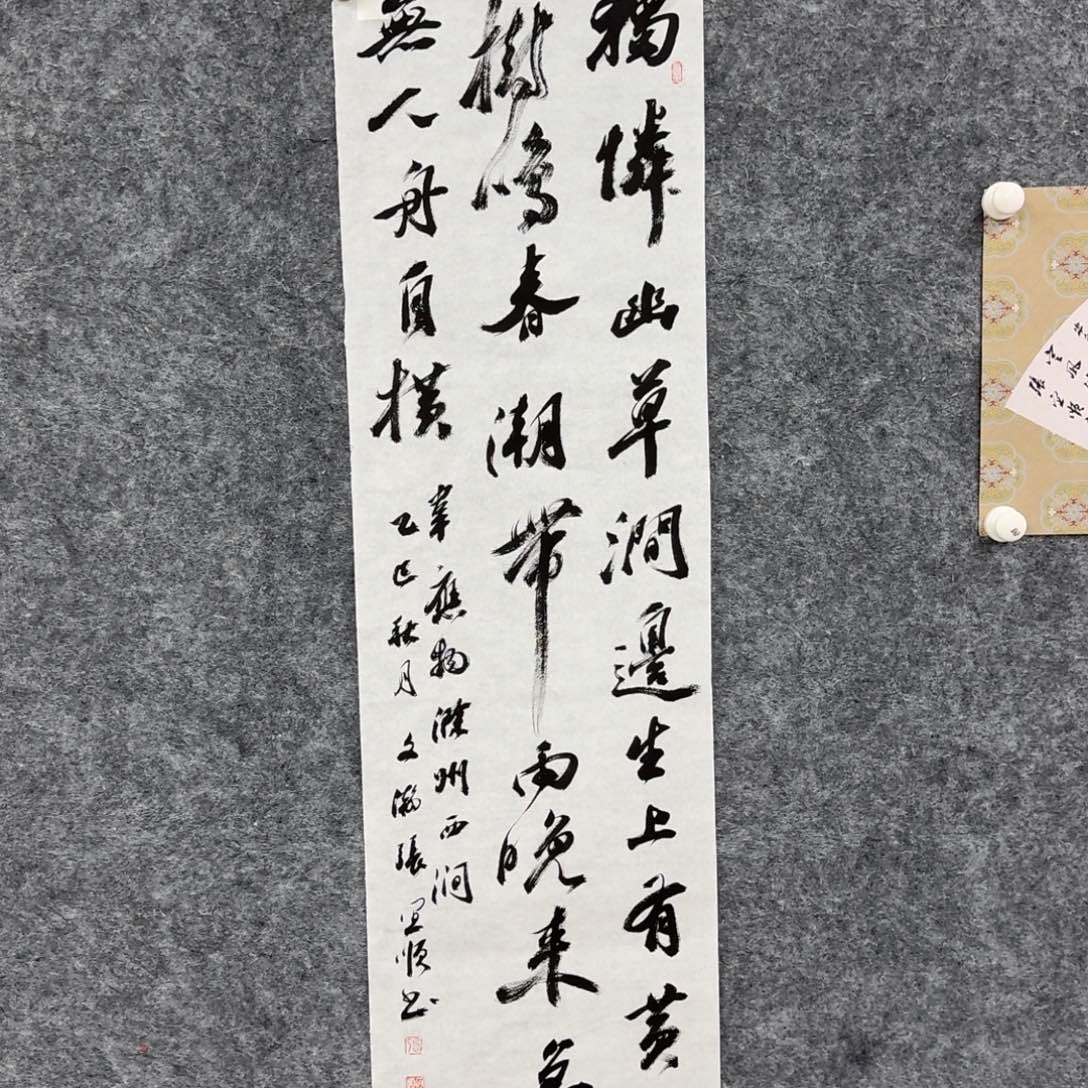 獨憐幽草澗邊生上有黃
樹鳴春潮帶雨晚來急
無人舟自橫
韋應物滁州西涧
乙巳秋月文瀚張宜順书